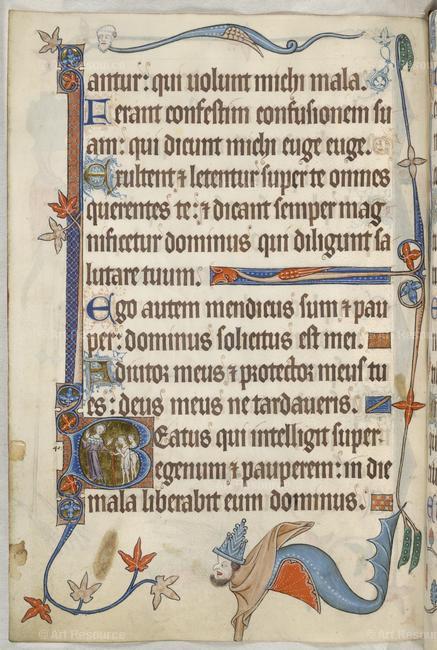 antur: qui uolunt michi mala.
Ferant confestim confusionem su
am: qui dicunt michi euge euge.
Exultent ⁊ letentur super te omnes
querentes te: ⁊ dicant semper mag
nificetur dominus qui diligunt sa
lutare tuum.
Ego autem mendicus sum ⁊ pau
per: dominus solicitus est mei.
Adiutor meus ⁊ protector meus tu
es: deus meus ne tardaueris.
Beatus qui intelligit super
egenum ⁊ pauperem: in die
mala liberabit eum dominus.
© Art Resource
© Art Resource